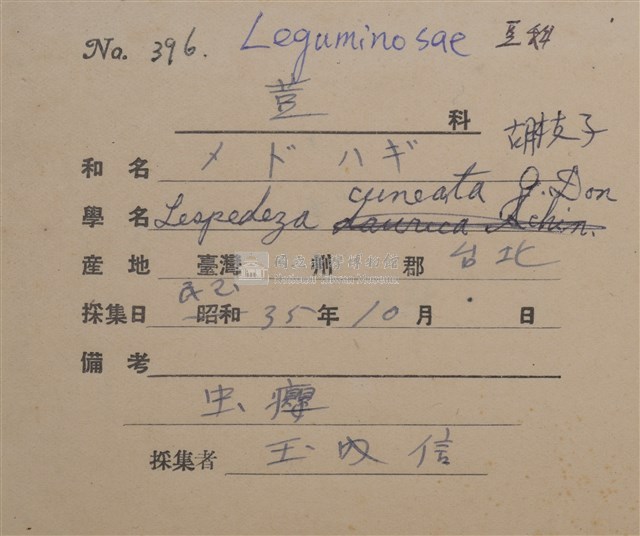 No. 396. Leguminosae 豆科
荳 科
胡枝子
和名 メドハギ
cuneata G. Don
學名 Lespedeza
産地 臺灣 州 郡 台北
民國
採集日 昭和 35年 10月 日
備考
虫癭
採集者 王 信